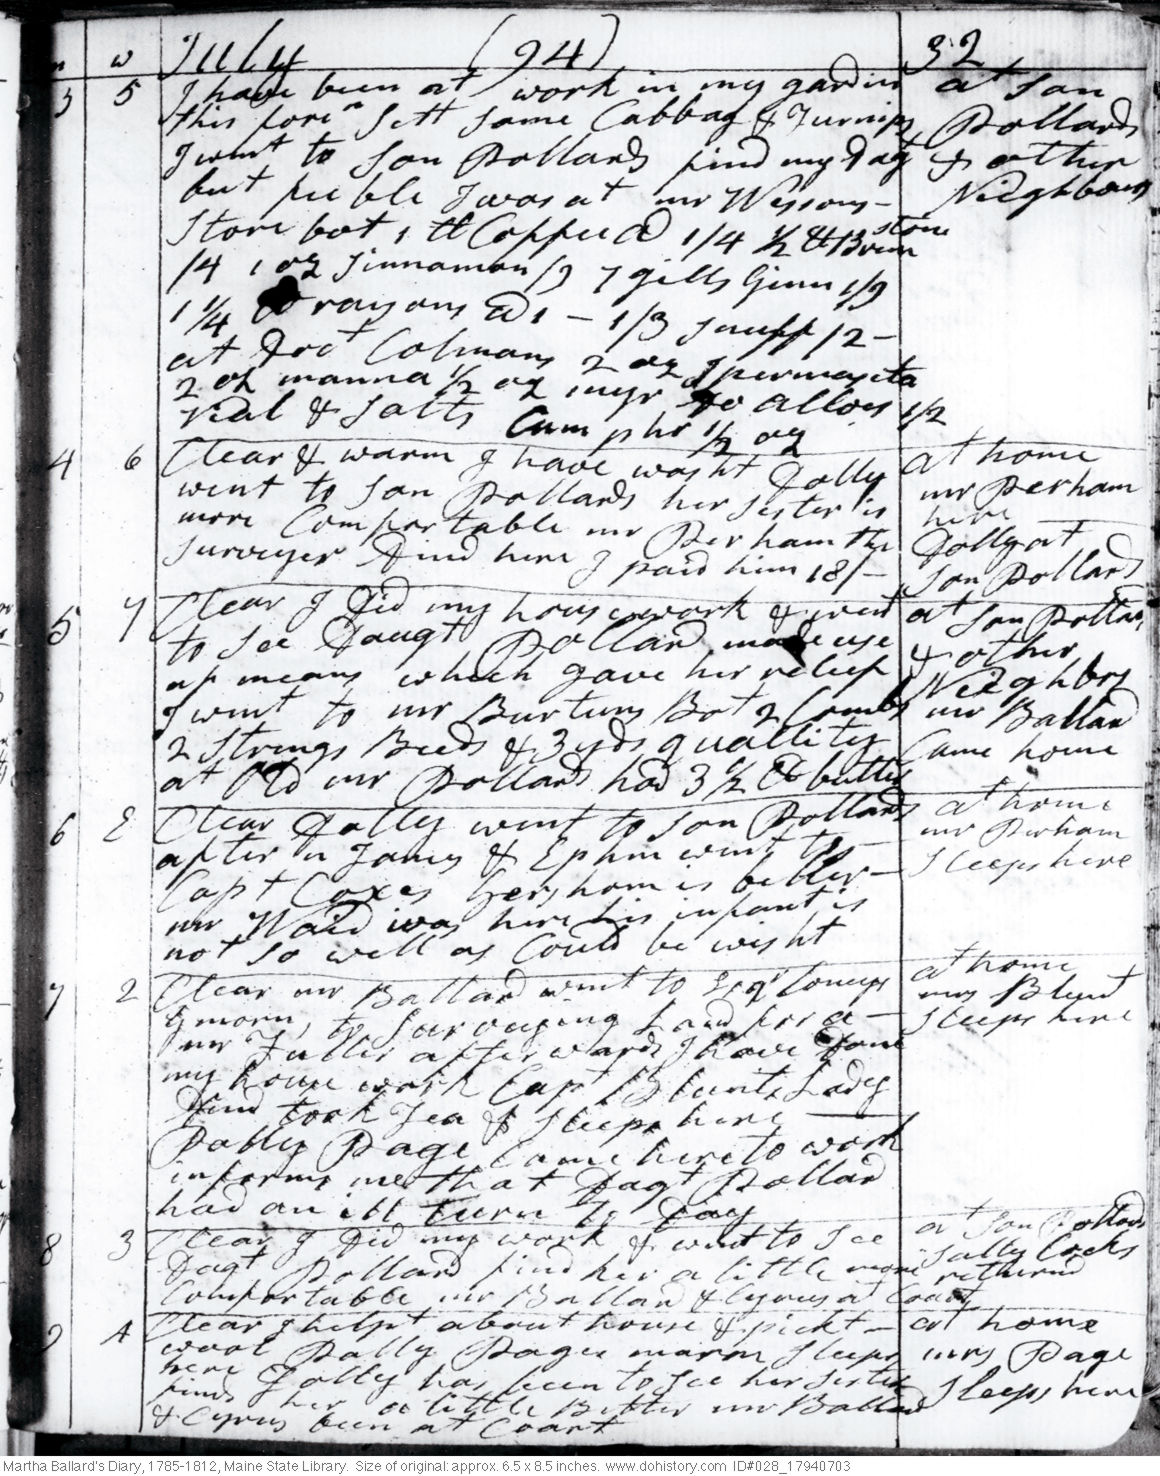 m w July (94) 32
3 5 I have been at work in my gardin at Son
this foren Sett Some Cabbag & Turnips Pollards
I went to Son Pollards find my Dagt & other
but feeble I was at mr Wessons Neighbours
Store bot 1 lb Coffee @ 1/4 ½ lb Brimstone
/4 1 oz Sinnamon /9 7 gills Ginn 1/9
1 ¼ lb raysons @ 1 – 1/3 snuff /2 –
at Doct Colmans 2 oz Spermacita
2 of manna ½ oz myr do alloes 1/2
vial & Salts Camphr ½ oz
4 6 Clear & warm I have washt Dolly at home
went to Son Pollards her Sister is mr Perham
more Comfortable mr Perham the here
Surveyer Dind here I paid him 18/– Dolly at
Son Pollards
5 7 Clear I Did my hous work & went at Son Pollards
to See Daugt Pollard made use & other
of means which gave her releef Neighbrs
I went to mr Burtuns Bot 2 Combs mr Ballard
2 Strings Beeds & 3 yds quallity Came home
at Old mr Pollards had 3 ½ lb butter
6 E Clear Dolly went to Son Pollards at home
after n James & Ephm went to mr Perham
Capt Coxes Gershom is better Sleeps here
mr Waid was here his infant is
not So well as Could be wisht
7 2 Clear mr Ballard went to Esqr Coneys at home
& morn, to Surveying Land for a mrs Blunt
mr Fuller afterwards I have Done Sleeps here
my house work Capt Blunts Lady
Dind took Tea & Sleeps here
Polly Page Came here to work
informs me that Dagt Pollard
had an ill turn to Day
8 3 Clear I Did my work & went to See at Son Pollards
Dagt Pollard find her a little more Sally Cocks
Comfortable mr Ballard & Cyrus at Coart returnd
9 4 Clear I helpt about house & pickt at home
wool Polly Pages marm Sleeps mrs Page
here Dolly has been to See her Sister Sleeps here
finds her a little Better mr Ballard
& Cyrus been at Coart
Martha Ballard's Diary, 1785-1812, Maine State Library. Size of original: approx. 6.5 x 8.5 inches. www.dohistory.com ID#028_17940703